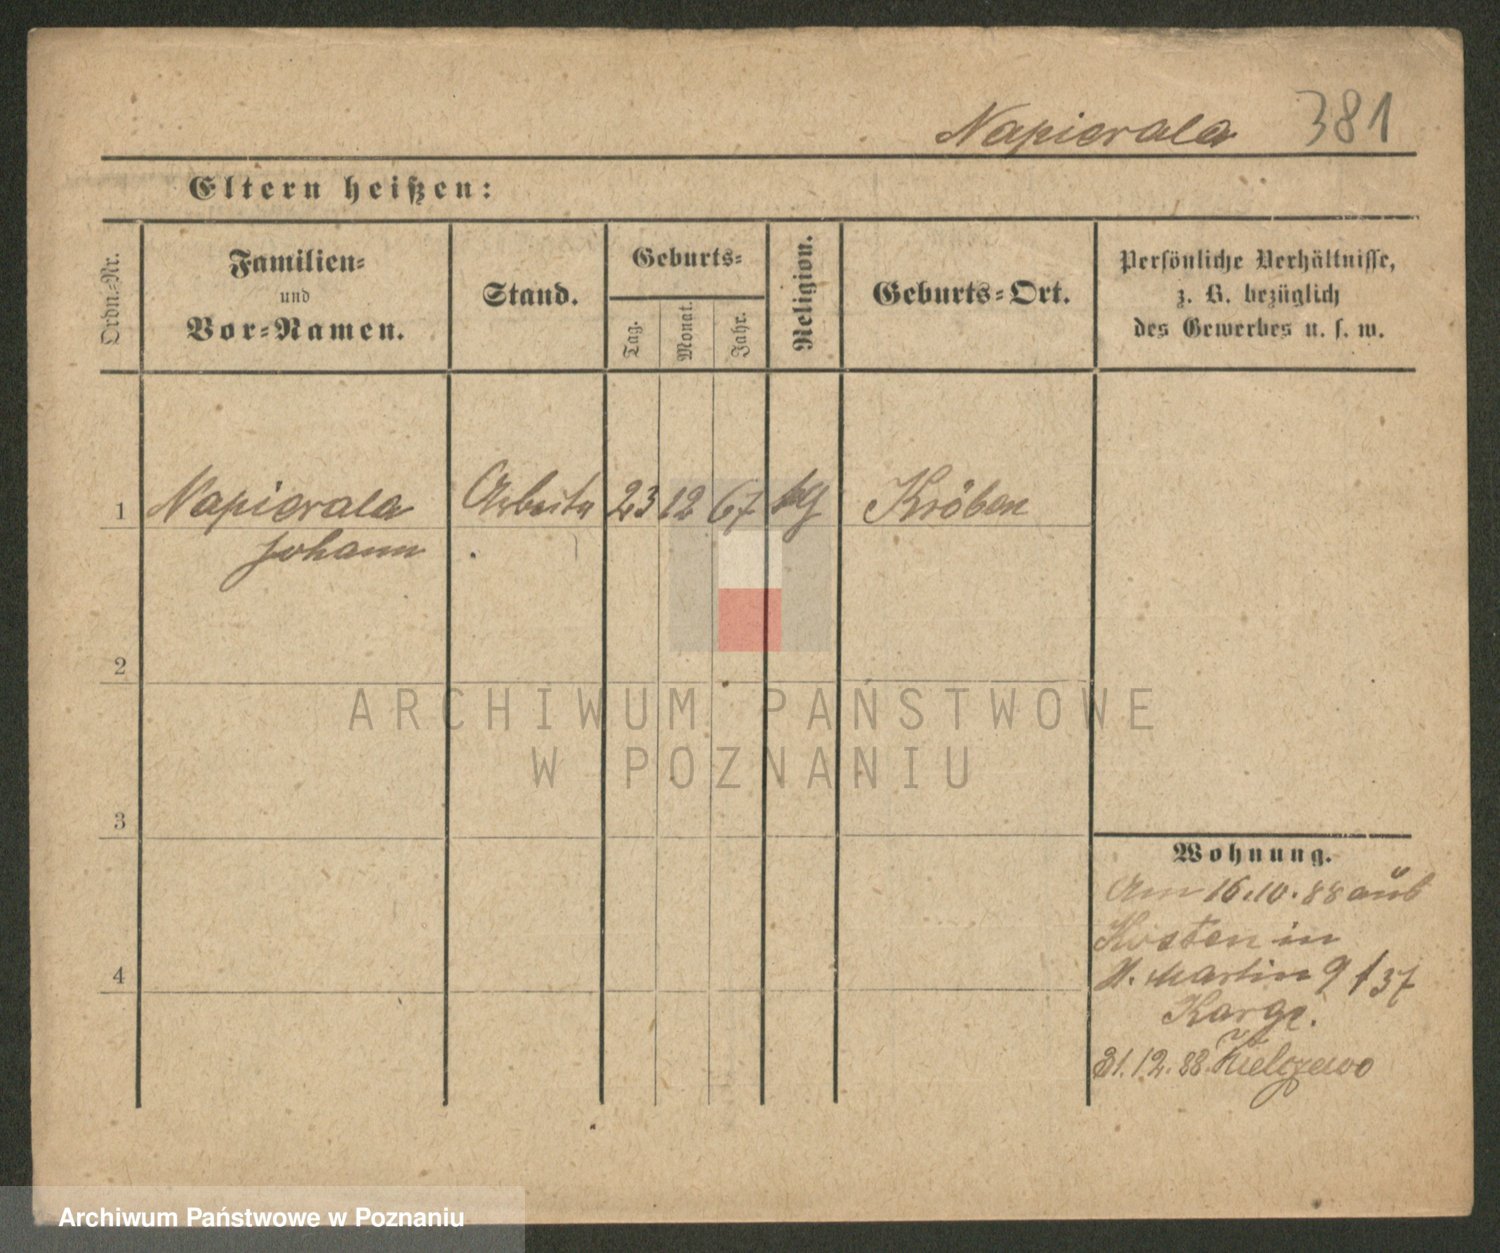 Napierala 381
Eltern heißen:
Ordn.-Nr.
Familien-
und
Vor-Namen.
Stand.
Geburts-
Tag.
Monat.
Jahr.
Religion.
Geburts-Ort.
Persönliche Verhältnisse,
z. B. bezüglich
des Gewerbes u. s. w.
1 Napierala Arbeiter 23 12 67 Kröben
Johann
2
ARCHIWUM PAŃSTWOWE
W POZNANIU
3
Wohnung.
Am 16.10.88 aus
Kosten in
St. Martin 9 / 37
4
Karge.
31.12.88. Kielczewo
Archiwum Państwowe w Poznaniu